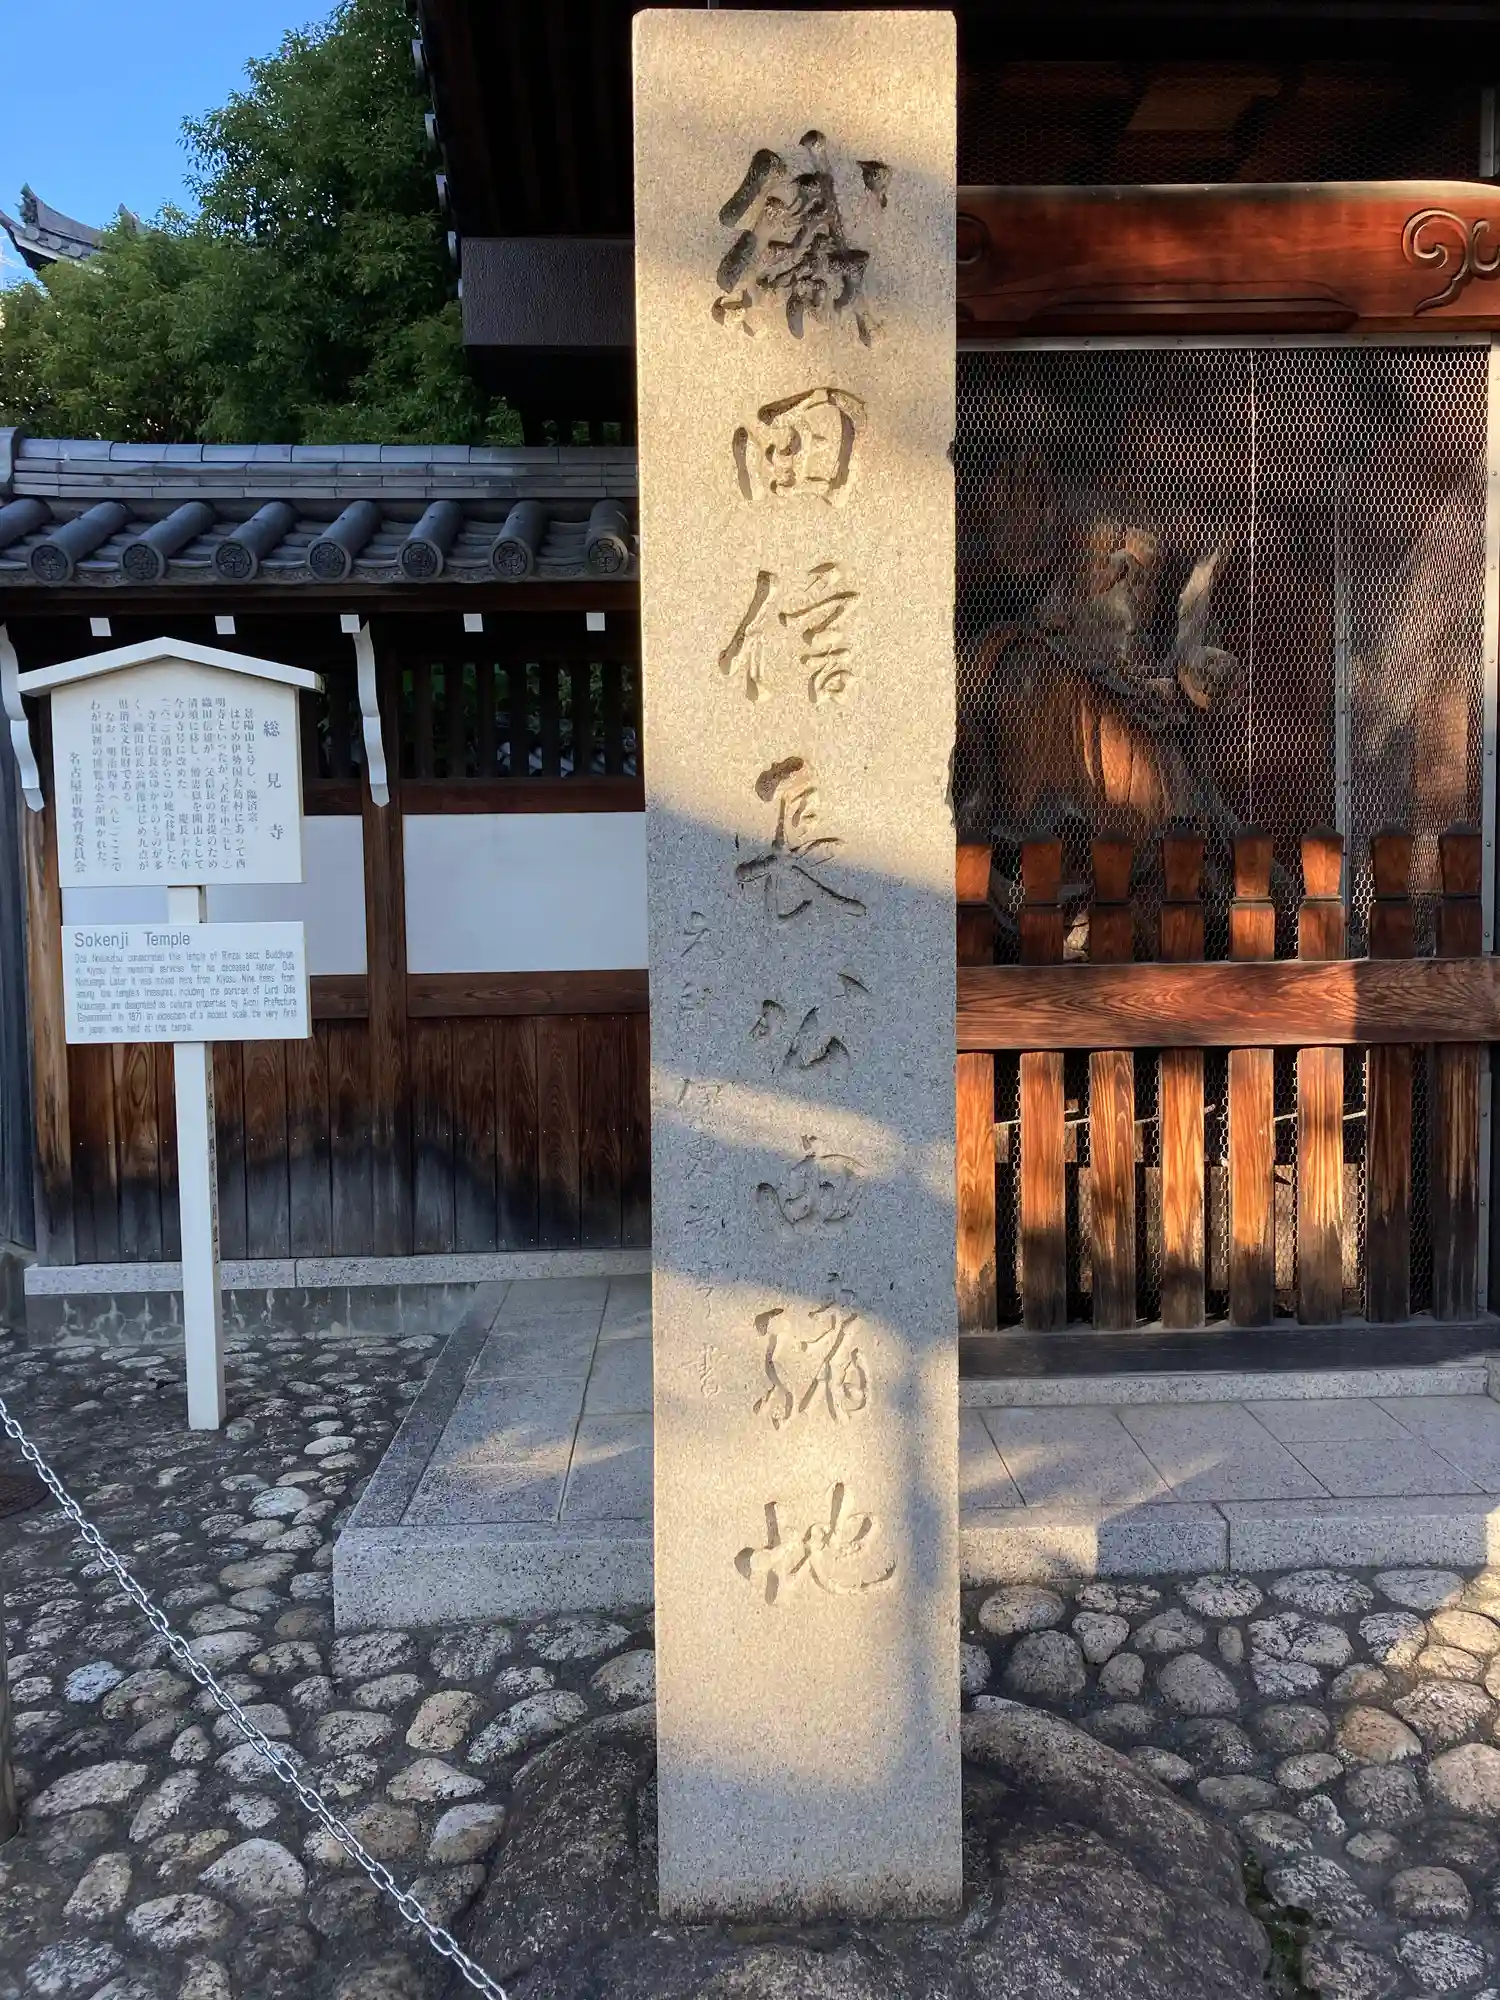 織田信長公由緒地
書
総見寺
景陽山と号し、臨済宗。
はじめ伊勢国大島村にあって西
明寺といったが、天正年中
織田信雄が、父信長の菩提のため
清須に移し、忠嶽を開山として
今の寺号に改めた。慶長十六年
清須からこの地へ移建した。
寺宝に信長公ゆかりのものが多
く、織田信長公画像はじめ九点が
県指定文化財である。
なお、明治四年(一八七一)ここで
わが国初の博覧小会が開かれた。
名古屋市教育委員会
Sokenji Temple
Oda Nobukatsu consecrated this temple of Rinzai sect Buddhism
in Kiyosu for memorial services for his deceased father, Oda
Nobunaga. Later it was moved here from Kiyosu. Nine items from
among the temple's treasures, including the portrait of Lord Oda
Nobunaga, are designated as cultural properties by Aichi Prefectural
Government. In 1871 an exposition of a modest scale, the very first
in Japan, was held at this temple.